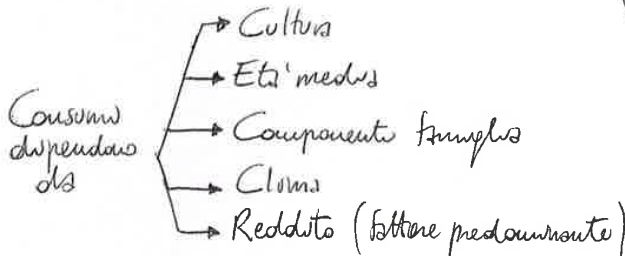 Consumi
dipendono
da
Cultura
Età media
Componenti famiglia
Clima
Reddito (fattore predominante)